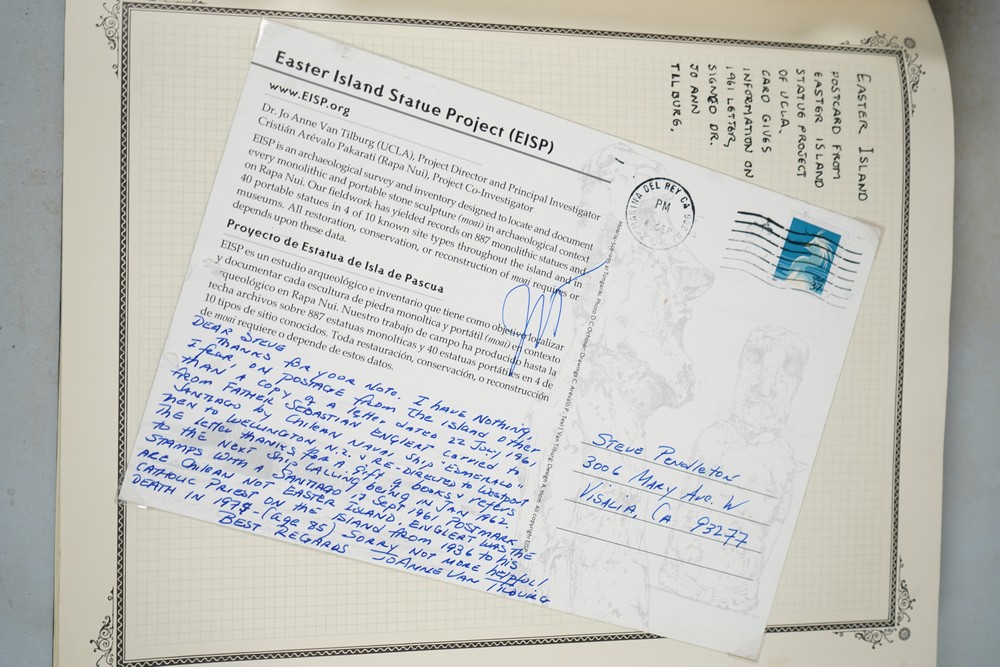 EASTER ISLAND
POSTCARD FROM
EASTER ISLAND
STATUE PROJECT
OF UCLA.
CARD GIVES
INFORMATION ON
1961 LETTER,
SIGNED DR.
JO ANN
TILBURG.
Easter Island Statue Project (EISP)
www.EISP.org
Dr. Jo Anne Van Tilburg (UCLA), Project Director and Principal Investigator
Cristián Arévalo Pakarati (Rapa Nui), Project Co-Investigator
EISP is an archaeological survey and inventory designed to locate and document
every monolithic and portable stone sculpture (moai) in archaeological context
on Rapa Nui. Our fieldwork has yielded records on 887 monolithic statues and
40 portable statues in 4 of 10 known site types throughout the island and in
museums. All restoration, conservation, or reconstruction of moai requires or
depends upon these data.
Proyecto de Estatua de Isla de Pascua
EISP es un estudio arqueológico e inventario que tiene como objetivo localizar
y documentar cada escultura de piedra monolítica y portátil (moai) en contexto
rqueológico en Rapa Nui. Nuestro trabajo de campo ha producido hasta la
fecha archivos sobre 887 estatuas monolíticas y 40 estatuas portátiles en 4 de
10 tipos de sitio conocidos. Toda restauración, conservación, o reconstrucción
de moai requiere o depende de estos datos.
DEAR STEVE
THANKS FOR YOUR NOTE. I HAVE NOTHING,
I FEAR, ON POSTAGE FROM THE ISLAND OTHER
THAN A COPY of a letter dated 22 July 1961
FROM FATHER SEBASTIAN ENGLERT CARRIED to
SANTIAGO by CHILEAN NAVAL SHIP "ESMERALD"
then to WELLINGTON, N.Z. & RE-DIRECTED to WESTPORT
THE letter thanks for A gift of BOOKS & refers
to the NEXT SHIP CALLING being IN JAN 1962.
STAMPS WITH A SANTIAGO 17 SEPT 1961 POSTMARK
ARE CHILEAN NOT EASTER ISLAND. ENGLERT WAS THE
CATHOLIC PRIEST ON the ISLAND FROM 1936 to his
DEATH IN 1974 - (age 85) SORRY NOT MORE helpful!
BEST REGARDS JOANNE VAN TILBURG
MARINA DEL REY CA
PM
SEP
37
STEVE PENDLETON
3006 MARY AVE. W
VISALIA, CA 93277